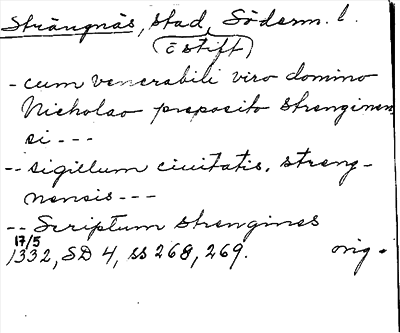 Strängnäs, stad, Söderm. l.
(= stift)
- cum venerabili viro domino
Nicholao preposito Strenginen
si - - -
-- sigillum ciuitatis, streng-
nensis - - -
-- Scriptum Strengines
17/5
1332, SD 4, ss 268, 269. orig.